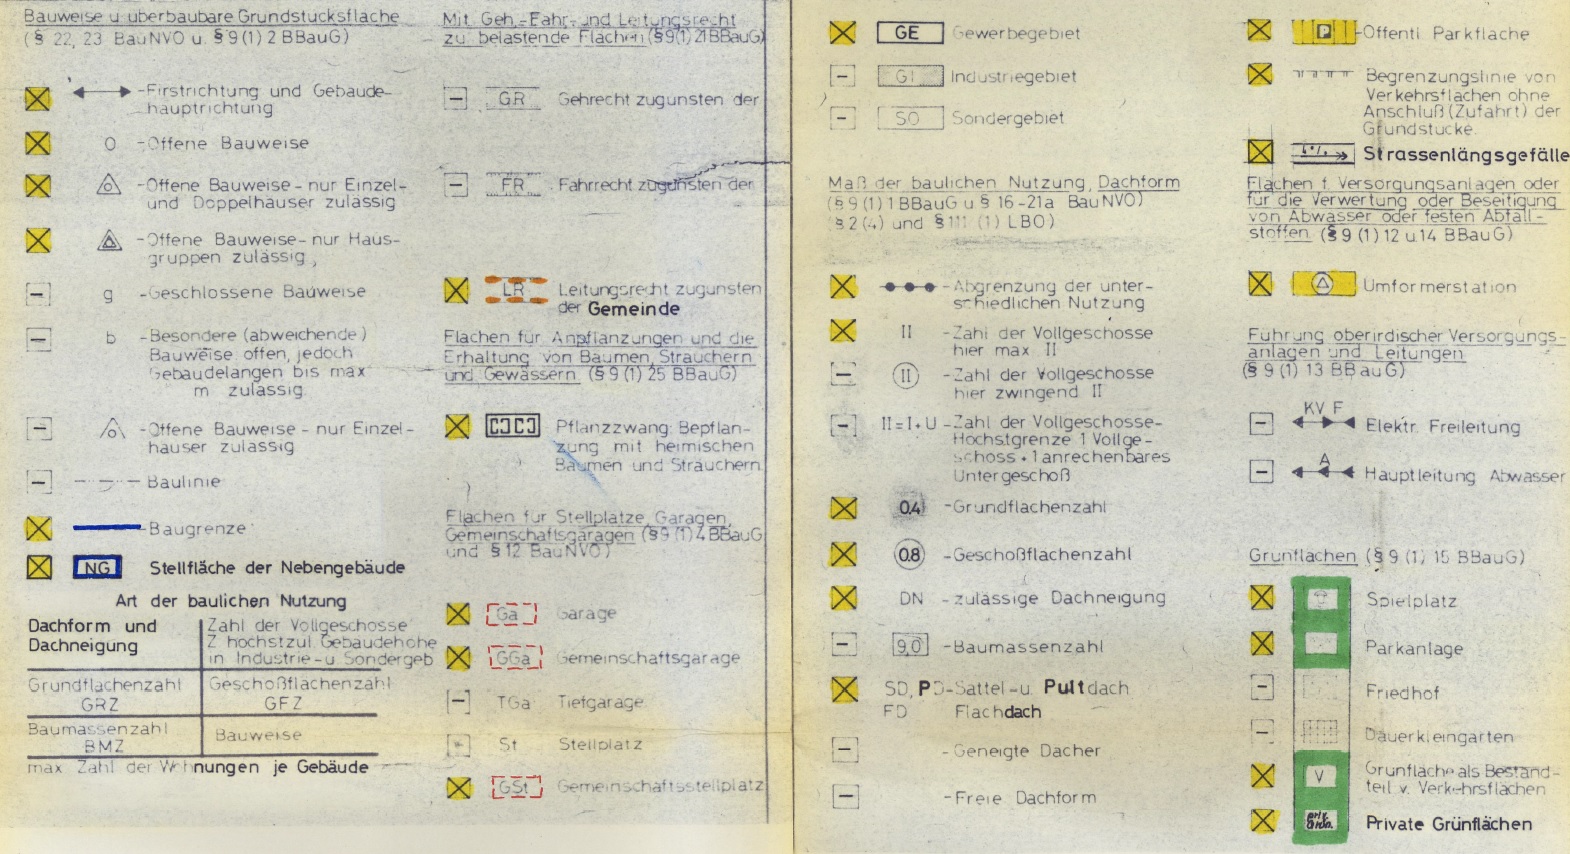 Bauweise u uberbaubare Grundstucksflache
(§ 22, 23 BauNVO u. § 9 (1) 2 BBauG)
-Firstrichtung und Gebaude-
hauptrichtung
O -Offene Bauweise
-Offene Bauweise - nur Einzel-
und Doppelhauser zulassig
-Offene Bauweise - nur Haus-
gruppen zulassig,
g -Geschlossene Bauweise
b -Besondere (abweichende)
Bauweise offen, jedoch
Gebaudelangen bis max
m zulassig.
-Offene Bauweise - nur Einzel-
hauser zulassig
-Baulinie
-Baugrenze
NG Stellfläche der Nebengebäude
Art der baulichen Nutzung
Dachform und
Dachneigung
Zahl der Vollgeschosse
Z hochstzul Gebaudehohe
in Industrie-u Sondergeb
Grundflachenzahl
GRZ
Geschoßflachenzahl
GFZ
Baumassenzahl
BMZ
Bauweise
max Zahl der Wohnungen je Gebäude
Mit Geh,-Fahr-und Leitungsrecht
zu belastende Flachen (§9(1)21BBauG)
GR Gehrecht zugunsten der
FR Fahrrecht zugunsten der
LR Leitungsrecht zugunsten
der Gemeinde
Flachen fur Anpflanzungen und die
Erhaltung von Baumen, Strauchern
und Gewassern (§ 9 (1) 25 BBauG)
Pflanzzwang: Bepflan-
zung mit heimischen
Baumen und Strauchern
Flachen fur Stellplatze, Garagen,
Gemeinschaftsgaragen (§9(1)4BBauG
und § 12 BauNVO)
Ga Garage
GGa Gemeinschaftsgarage
TGa Tiefgarage
St Stellplatz
GSt Gemeinschaftsstellplatz
GE Gewerbegebiet
GI Industriegebiet
SO Sondergebiet
Maß der baulichen Nutzung, Dachform
(§ 9 (1) 1 BBauG u § 16 -21a BauNVO)
§ 2 (4) und § 111 (1) LBO)
-Abgrenzung der unter-
schiedlichen Nutzung
II -Zahl der Vollgeschosse
hier max II
II -Zahl der Vollgeschosse
hier zwingend II
II=I+U -Zahl der Vollgeschosse-
Hochstgrenze 1 Vollge-
schoss + 1 anrechenbares
Untergeschoß
0.4 -Grundflachenzahl
0.8 -Geschoßflachenzahl
DN -zulässige Dachneigung
9,0 -Baumassenzahl
SD, PD-Sattel-u. Pultdach
FD Flachdach
-Geneigte Dacher
-Freie Dachform
P -Offentl Parkflache
Begrenzungslinie von
Verkehrsflachen ohne
Anschluß (Zufahrt) der
Grundstucke.
Strassenlängsgefälle
Flachen f. Versorgungsanlagen oder
für die Verwertung oder Beseitigung
von Abwasser oder festen Abfall-
stoffen (§ 9 (1) 12 u.14 BBauG)
Umformerstation
Fuhrung oberirdischer Versorgungs-
anlagen und Leitungen
(§ 9 (1) 13 BBauG)
KV F
Elektr Freileitung
A
Hauptleitung Abwasser
Grunflachen (§ 9 (1) 15 BBauG)
Spielplatz
Parkanlage
Friedhof
Dauerkleingarten
V Grunflache als Bestand-
teil v. Verkehrsflächen
priv. Grün. Private Grünflächen